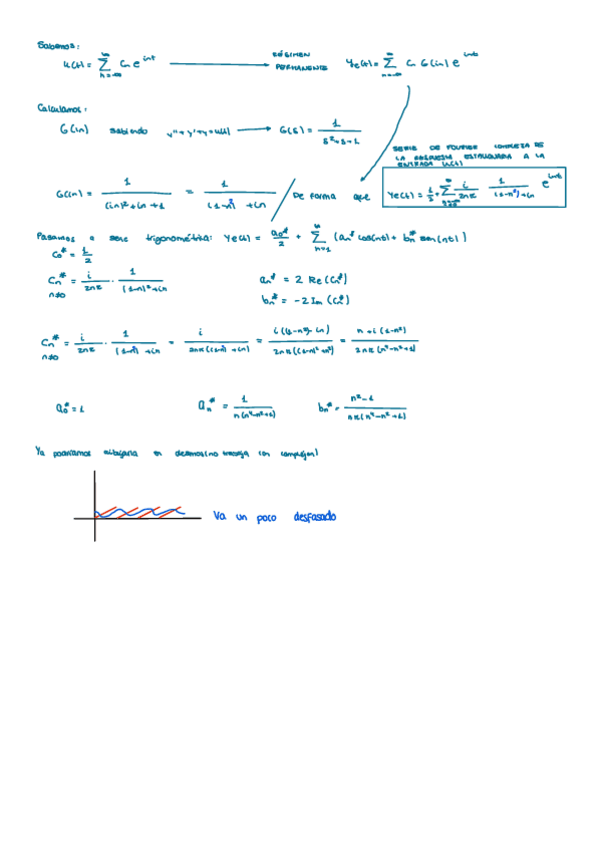 Sabemos:
u(t) = ∑ n=-∞ ∞ Cn e^int → RÉGIMEN PERMANENTE Ye(t) = ∑ n=-∞ ∞ Cn G(in) e^int
Calculamos:
G(in) sabiendo y''+y'+y=u(t) → G(s) = 1/(s²+s+1)
SERIE DE FOURIER COMPLEJA DE
LA RESPUESTA ESTACIONARIA A LA
ENTRADA u(t)
G(in) = 1/((in)²+in+1) = 1/((1-n²)+in) De forma que Ye(t) = 1/2 + ∑ i/2nπ 1/((1-n²)+in) e^int
Pasamos a serie trigonométrica: Ye(t) = a0*/2 + ∑ n=1 ∞ (an* cos(nt) + bn* sen(nt))
C0* = 1/2
Cn* = i/2nπ · 1/((1-n)²+in) an* = 2 Re(Cn*)
n≠0 bn* = -2 Im(Cn*)
Cn* = i/2nπ · 1/((1-n²)+in) = i/(2nπ((1-n²)+in)) = i((1-n²)-in)/(2nπ((1-n²)²+n²)) = (n+i(1-n²))/(2nπ(n⁴-n²+1))
n≠0
a0* = 1 an* = 1/(π(n⁴-n²+1)) bn* = (n²-1)/(nπ(n⁴-n²+1))
Ya podríamos dibujarla en desmos (no trabaja con complejos)
Va un poco desfasado